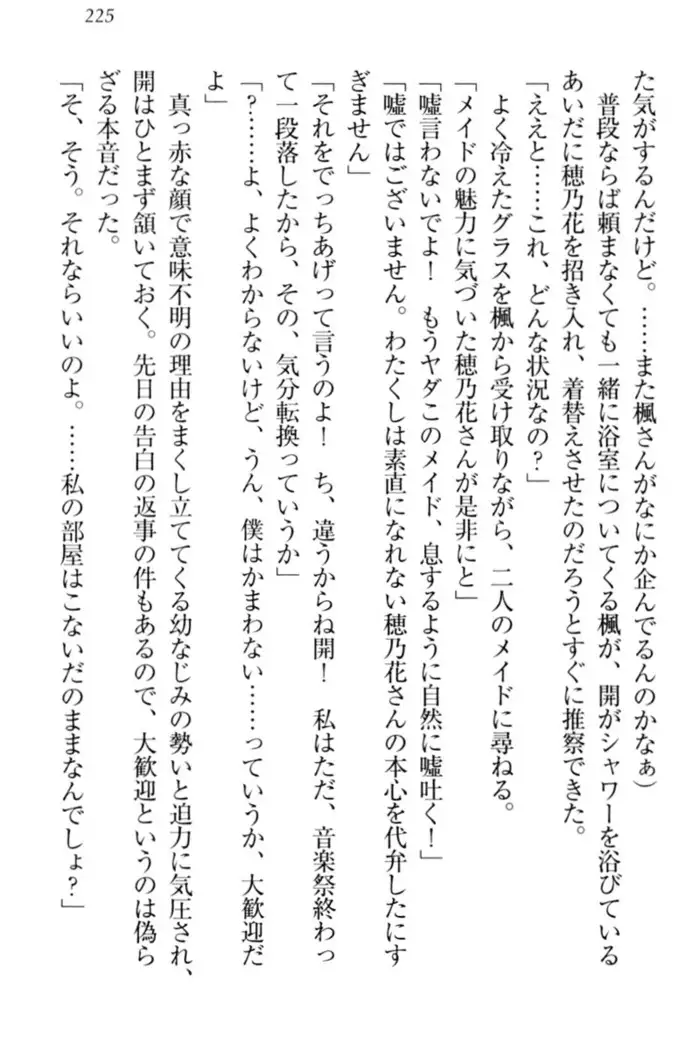 225
た気がするんだけど。……また楓さんがなにか企んでるんのかなぁ)
普段ならば頼まなくても一緒に浴室についてくる楓が、開がシャワーを浴びている
あいだに穂乃花を招き入れ、着替えさせたのだろうとすぐに推察できた。
「ええと……これ、どんな状況なの?」
よく冷えたグラスを楓から受け取りながら、二人のメイドに尋ねる。
「メイドの魅力に気づいた穂乃花さんが是非にと」
「嘘言わないでよ! もうヤダこのメイド、息するように自然に嘘吐く!」
「嘘ではございません。わたくしは素直になれない穂乃花さんの本心を代弁したにす
ぎません」
「それをでっちあげって言うのよ! ち、違うからね開! 私はただ、音楽祭終わっ
て一段落したから、その、気分転換っていうか」
「?……よ、よくわからないけど、うん、僕はかまわない……っていうか、大歓迎だ
よ」
真っ赤な顔で意味不明の理由をまくし立ててくる幼なじみの勢いと迫力に気圧され、
開はひとまず頷いておく。先日の告白の返事の件もあるので、大歓迎というのは偽ら
ざる本音だった。
「そ、そう。それならいいのよ。……私の部屋はこないだのままなんでしょ?」